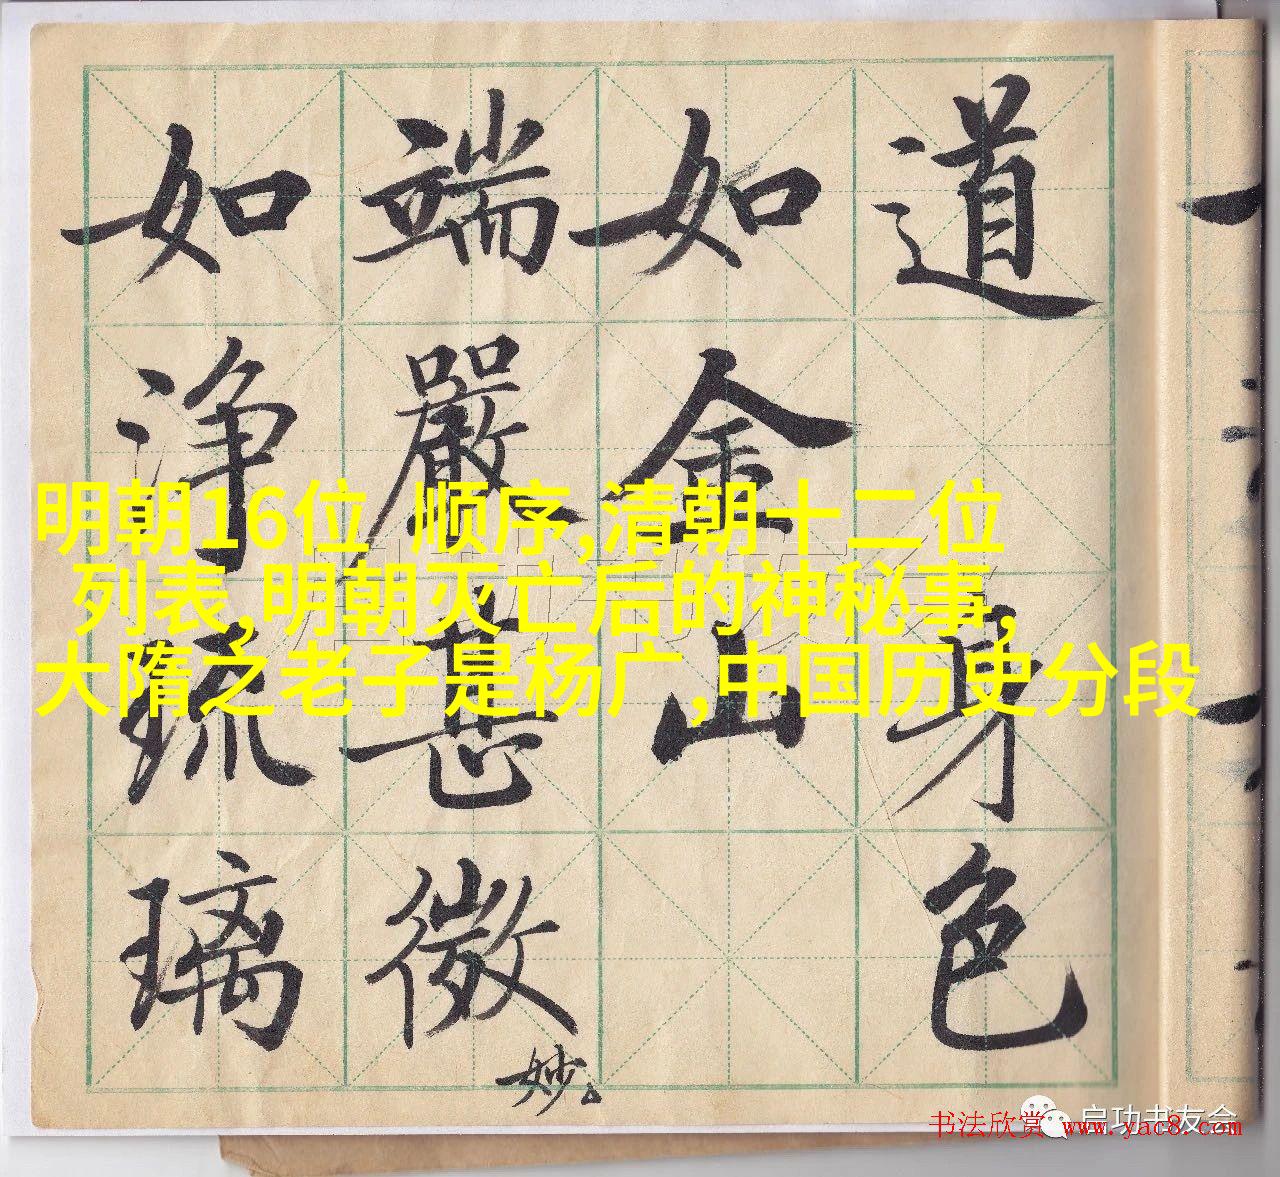 道身色
如金山
端嚴甚微妙
如淨琉璃
明朝16位 顺序,清朝十二位
列表,明朝灭亡后的神秘事,
大隋之老子是杨广,中国历史分段
启功书友会
书法欣赏 www.yac8.com